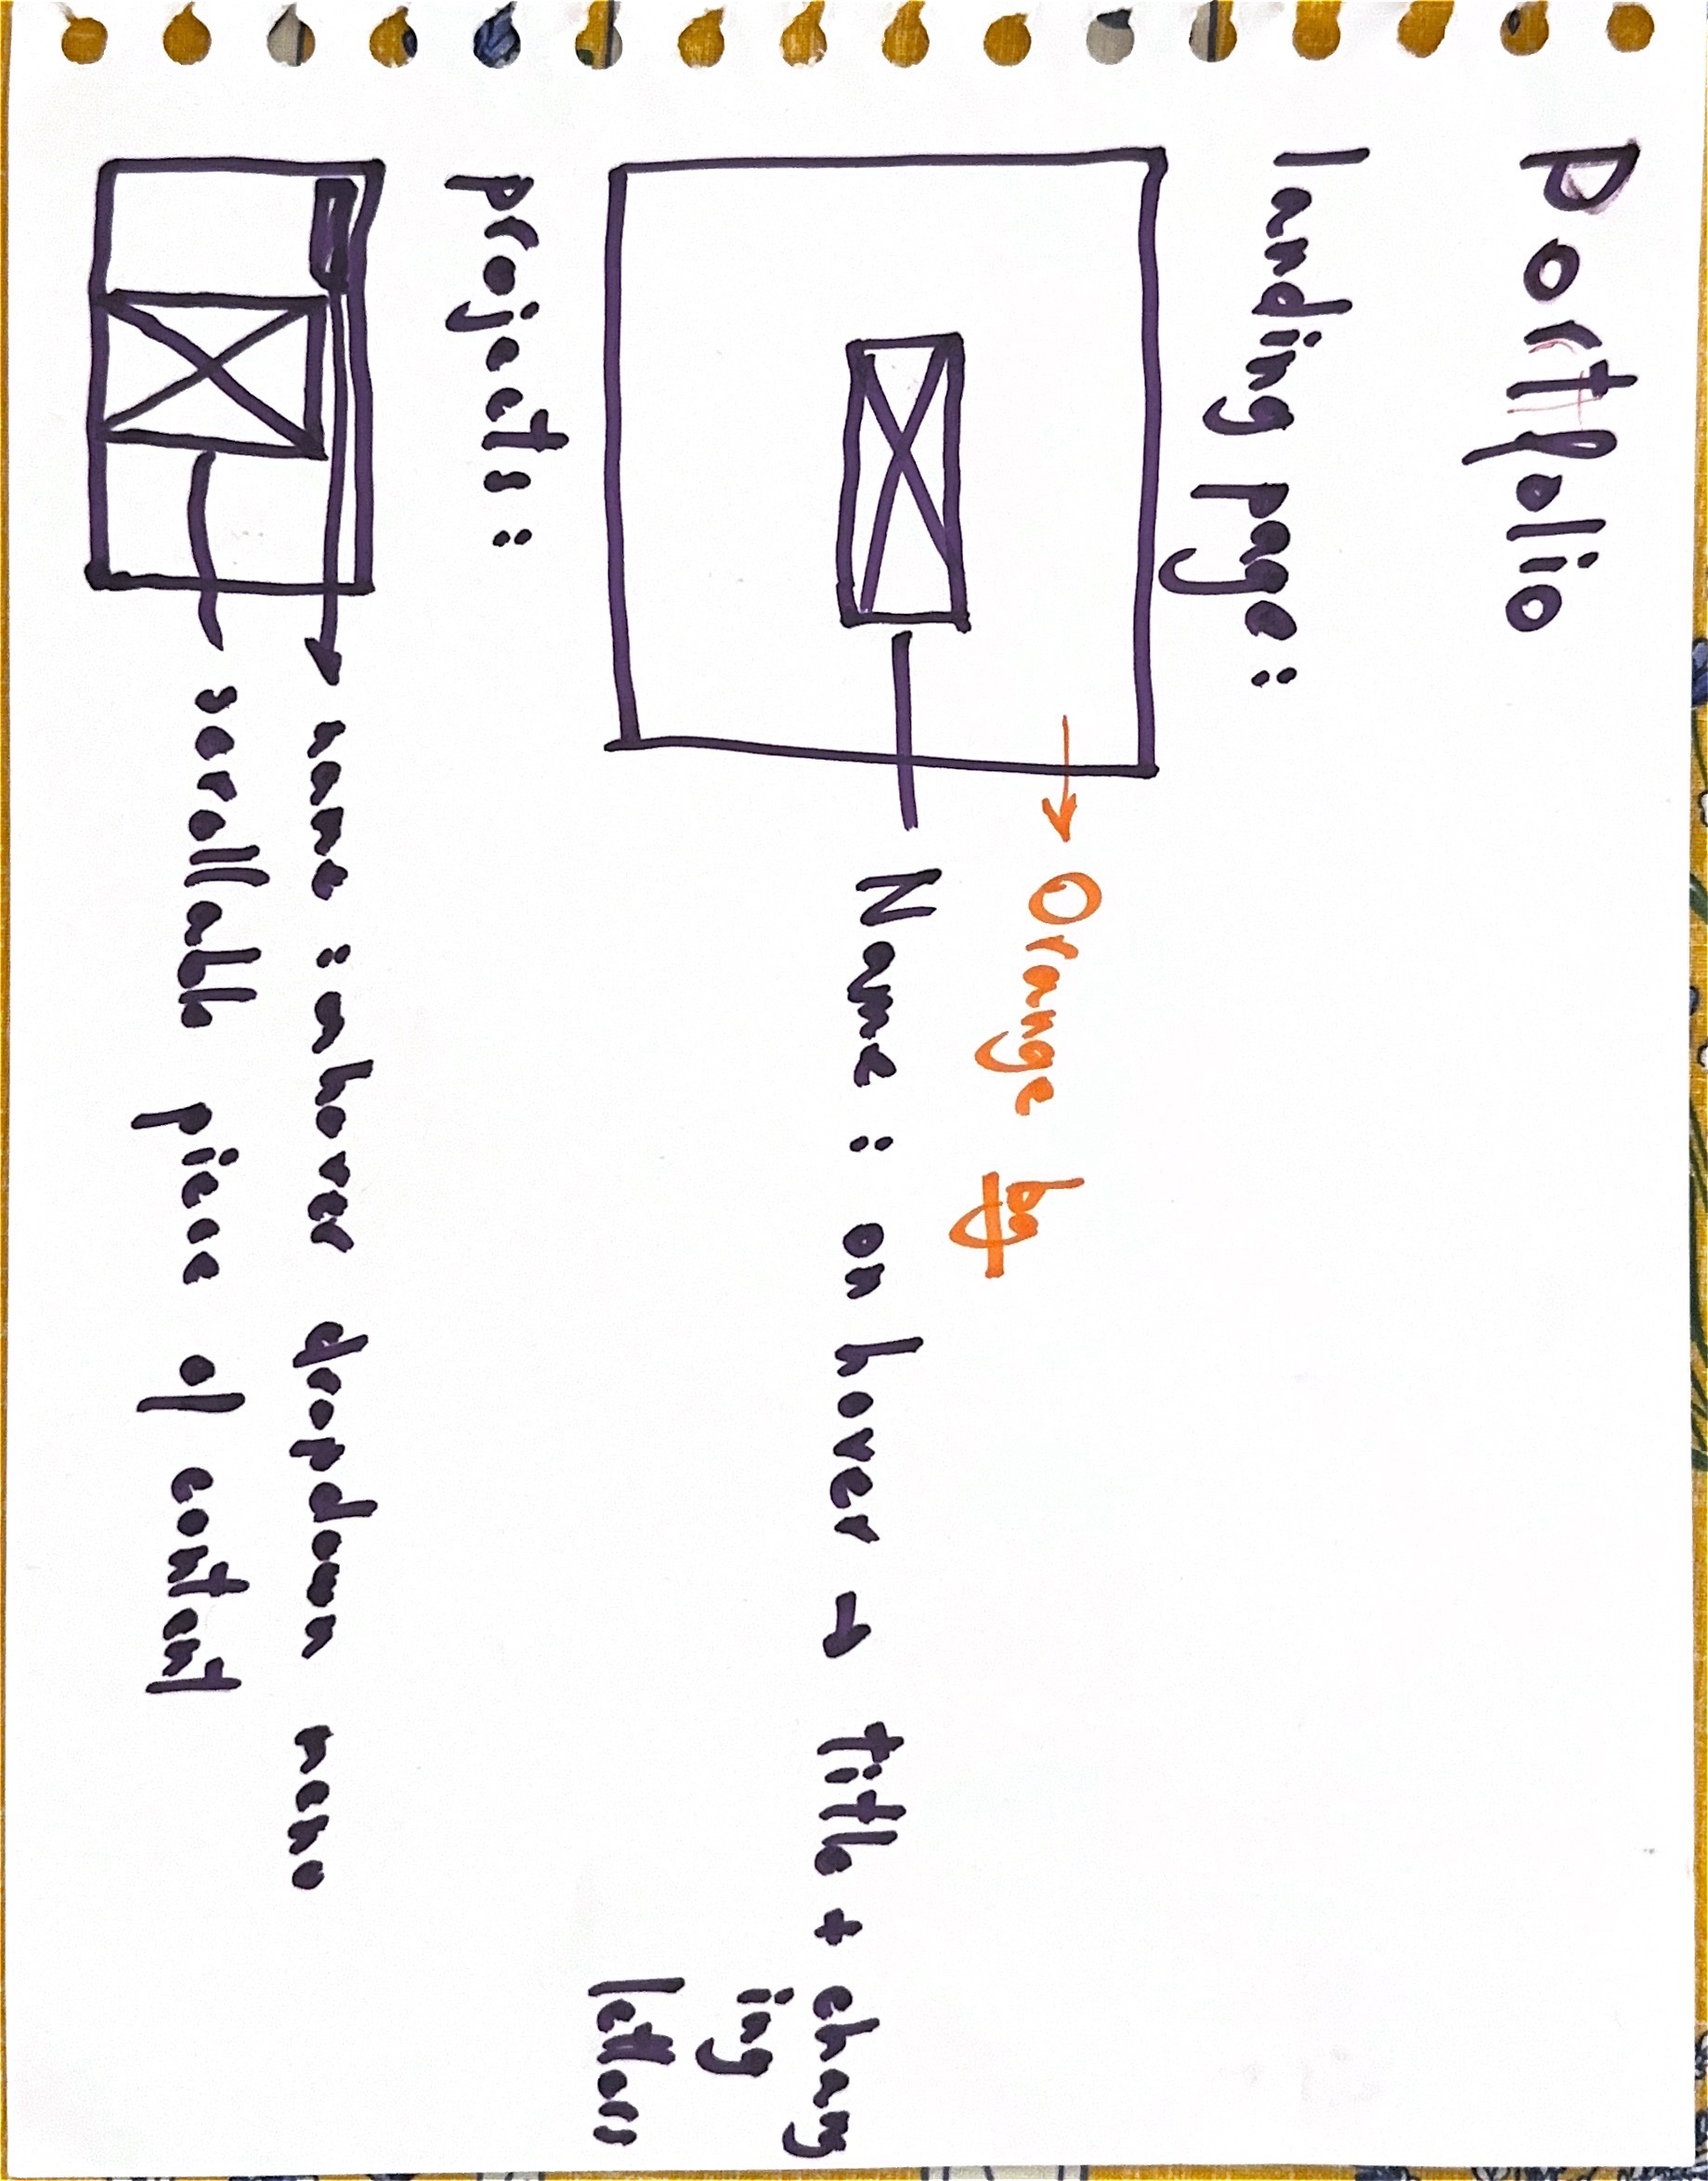 Portfolio
landing page:
Orange bg
Name : on hover → title + chang
ing
letters
projects :
name : onhover dropdown menu
scrollable piece of content